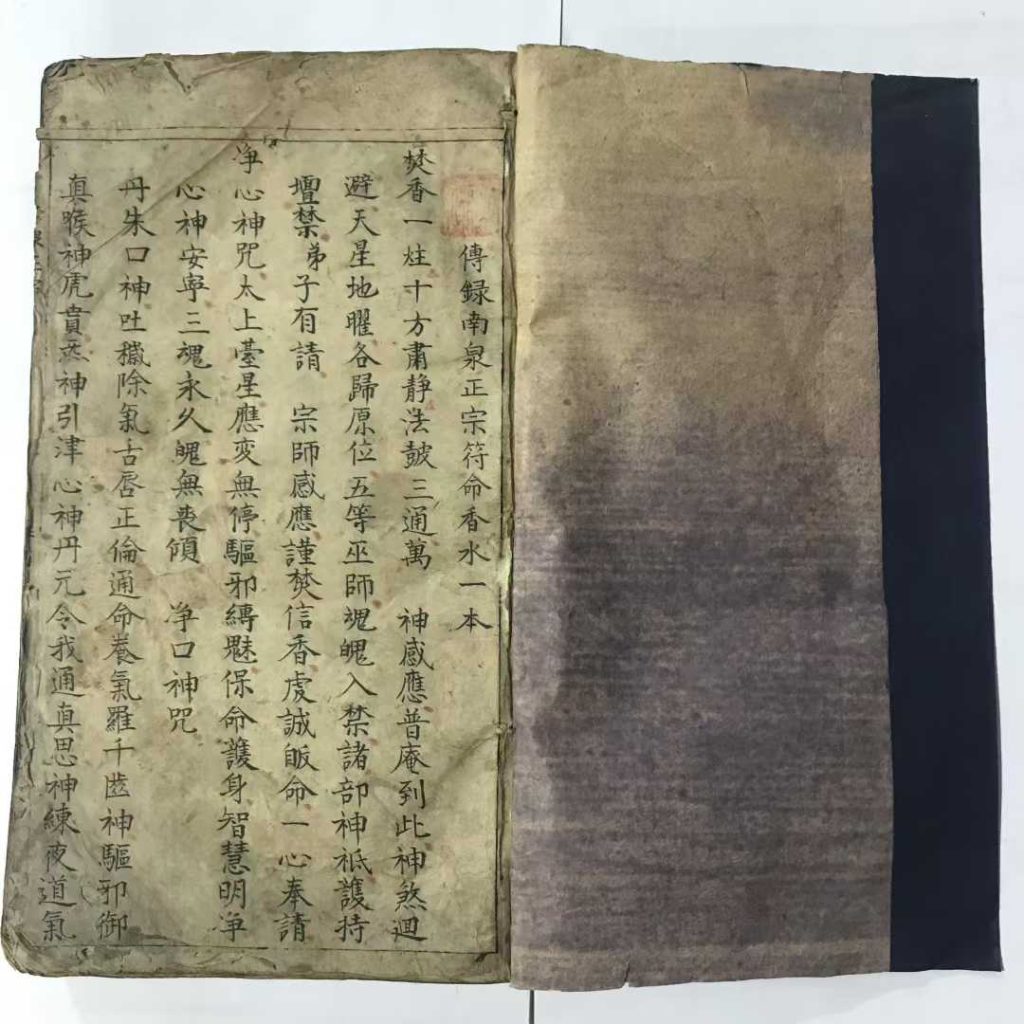 傳録南泉正宗符命香水一本
焚香一炷十方肅静法皷三通萬　神感應普庵到此神煞迴
避天星地曜各歸原位五等巫師魂魄入禁諸部神祇護持
壇禁弟子有請　宗師感應謹焚信香虔誠皈命一心奉請
净心神咒太上臺星應变無停驅邪縛魅保命護身智慧明净
心神安寧三魂永久魄無喪傾　净口神咒
丹朱口神吐穢除氣舌唇正倫通命養氣羅千齒神驅邪御
真喉神虎賁炁神引津心神丹元令我通真思神練夜道氣